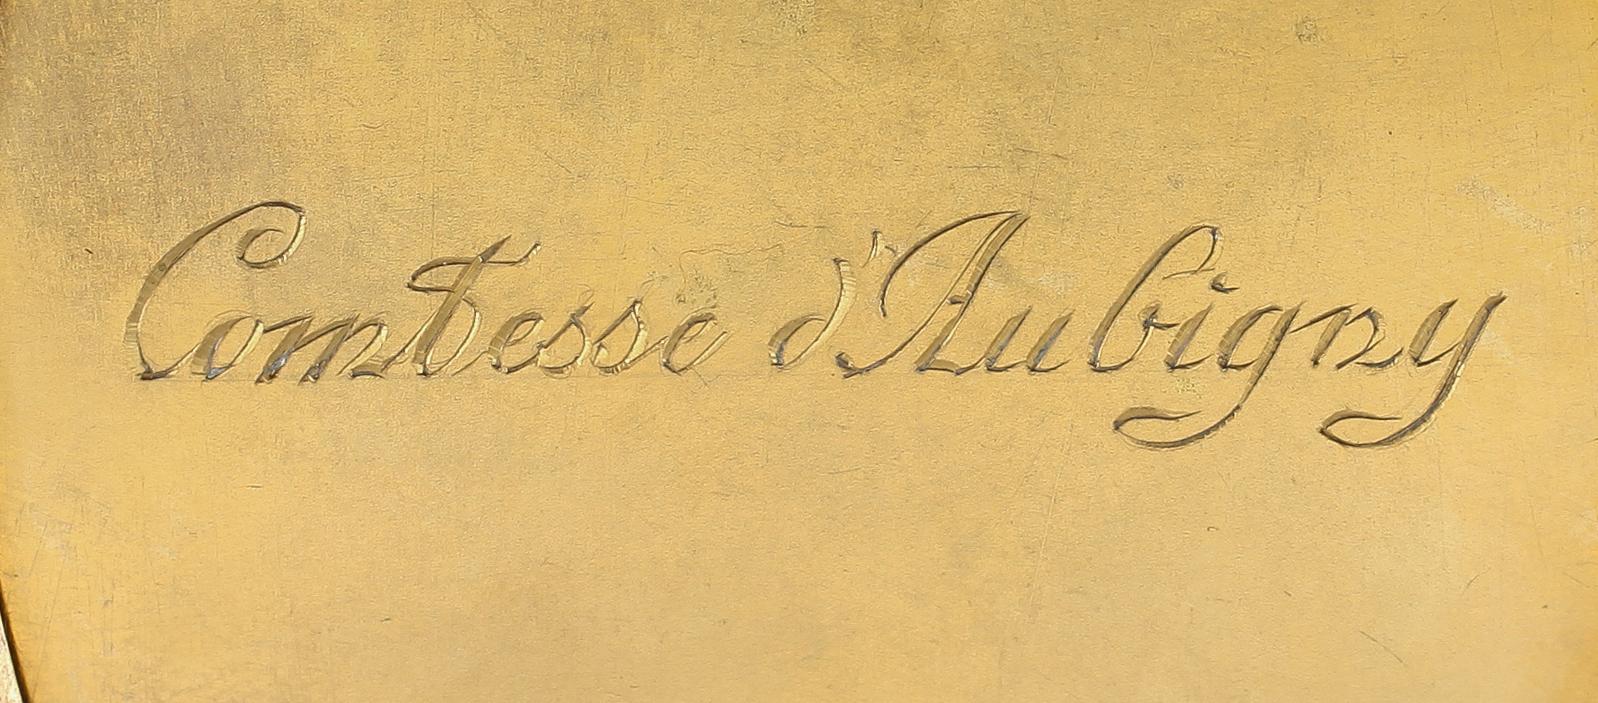 Comtesse d'Aubigny